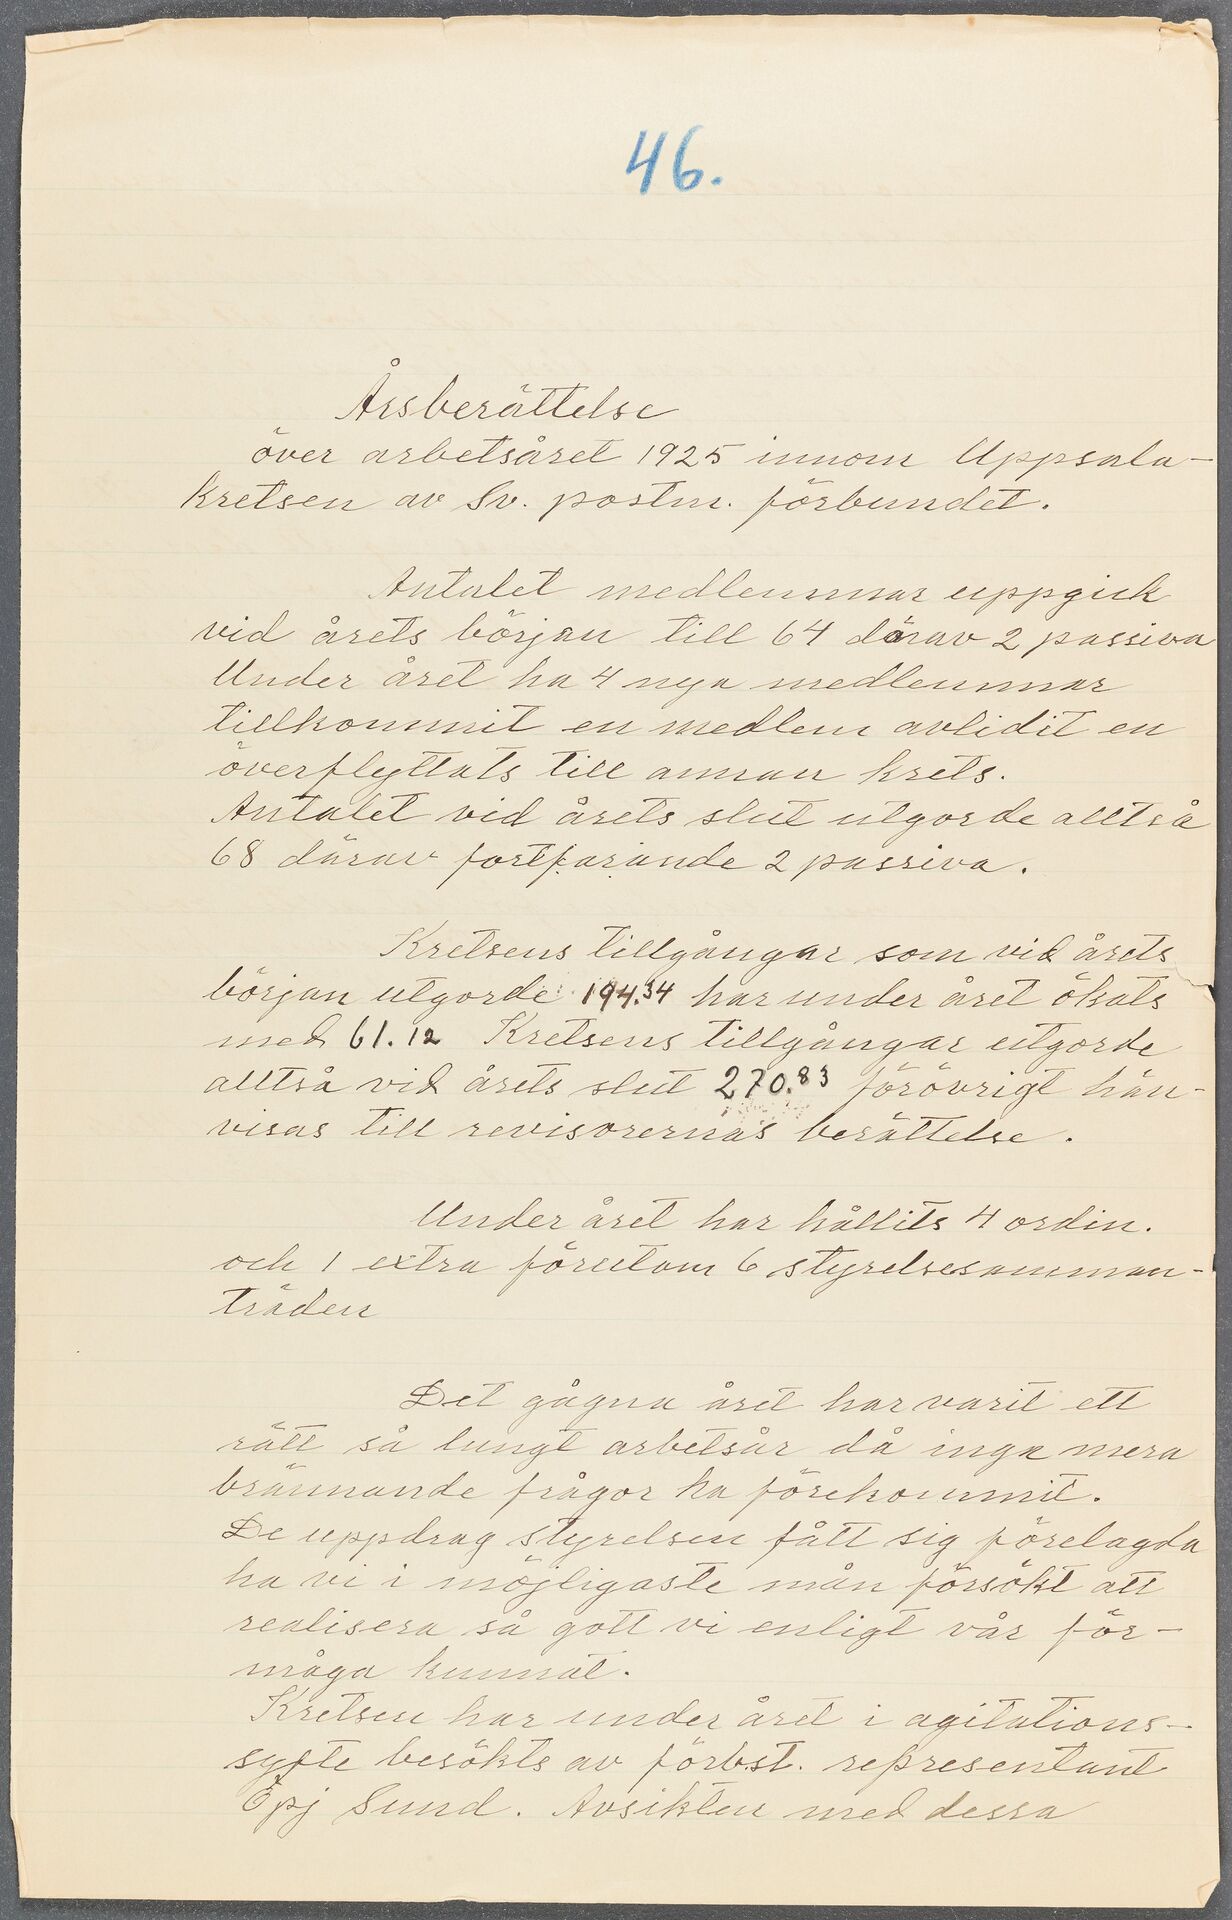 46.
Årsberättelse
över arbetsåret 1925 innom Uppsala-
kretsen av Sv. postm. förbundet.
Antalet medlemmar uppgick
vid årets början till 64 därav 2 passiva
Under året ha 4 nya medlemmar
tillkommit en medlem avlidit en
överflyttats till annan krets.
Antalet vid årets slut utgorde alltså
68 därav fortfarande 2 passiva.
Kretsens tillgångar som vid årets
början utgorde 194.34 har under året ökats
med 61.12 Kretsens tillgångar utgorde
alltså vid årets slut 270.83 förövrigt hän-
visas till revisorernas berättelse.
Under året har hållits 4 ordin.
och 1 extra förutom 6 styrelsesamman-
träden
Det gågna året har varit ett
rätt så lungt arbetsår då inga mera
brännande frågor ha förekommit.
De uppdrag styrelsen fått sig förelagda
ha vi i möjligaste mån försökt att
realisera så gott vi enligt vår för-
måga kunnat.
Kretsen har under året i agitations-
syfte besökts av förbst. representant
Öpj Sund. Avsikten med dessa